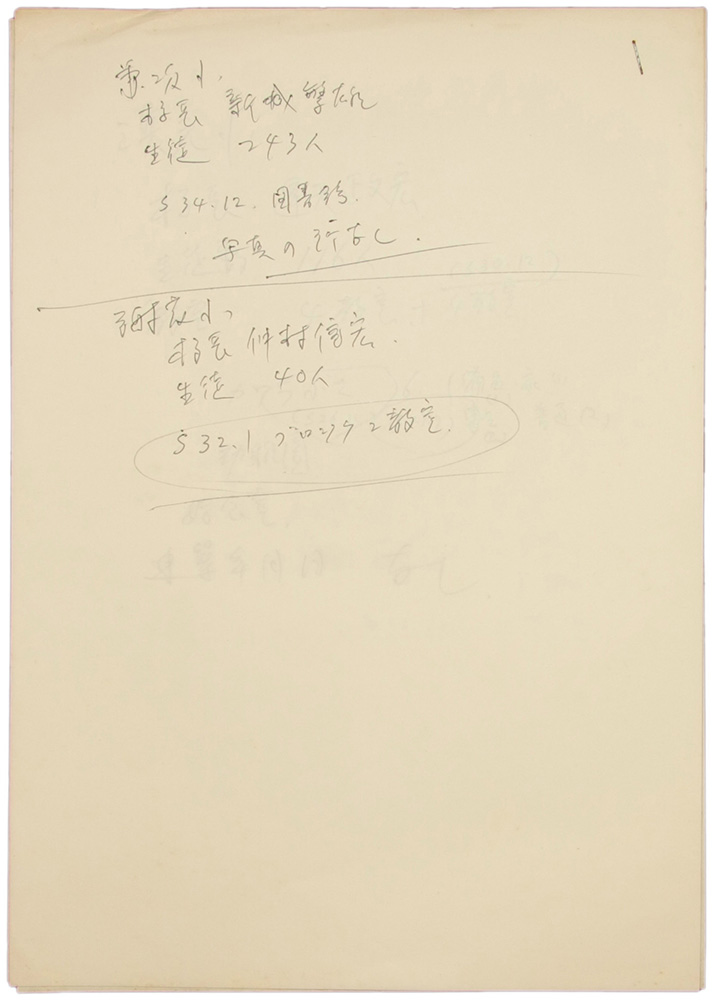 兼次小
校長 新城繁雄
生徒 243人
S34.12. 図書館.
写真の 行なし.
小
校長 仲村信宏.
生徒 40人
S32.1 ブロック2教室.